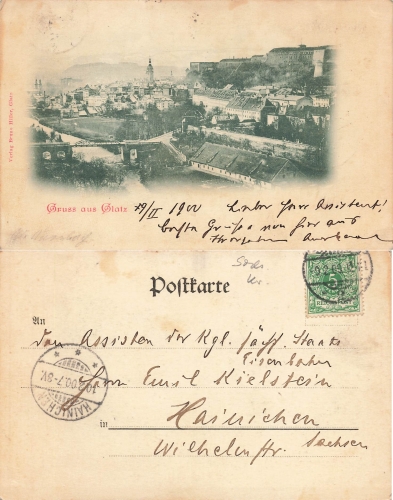 Verlag Bruno Müller, Glatz.
Gruss aus Glatz
19/II 1900 Lieber Herr Assistent!
beste Grüsse von hier aus
Postkarte
An
den Assisten der Kgl. Sächs. Staats
Eisenbahn
Herrn Emil Kielstein
HAINICHEN
Hainichen
in
Wilhelmstr. Sachsen